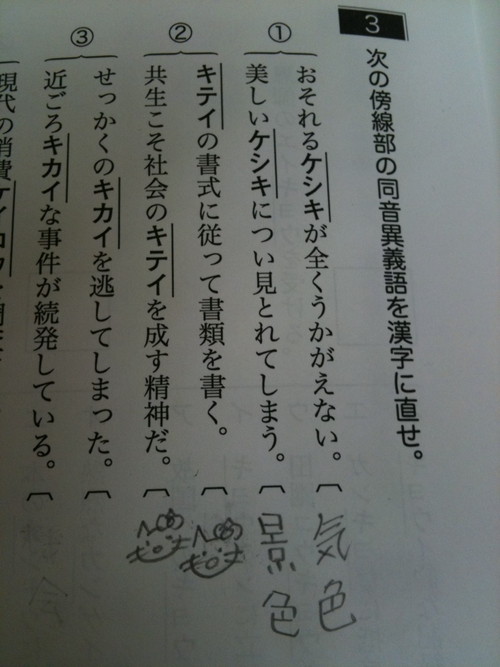 3 次の傍線部の同音異義語を漢字に直せ。
① おそれるケシキが全くうかがえない。〔気色
美しいケシキについ見とれてしまう。〔景色
② キテイの書式に従って書類を書く。〔
共生こそ社会のキテイを成す精神だ。〔
③ せっかくのキカイを逃してしまった。〔
近ごろキカイな事件が続発している。〔
現代の消費